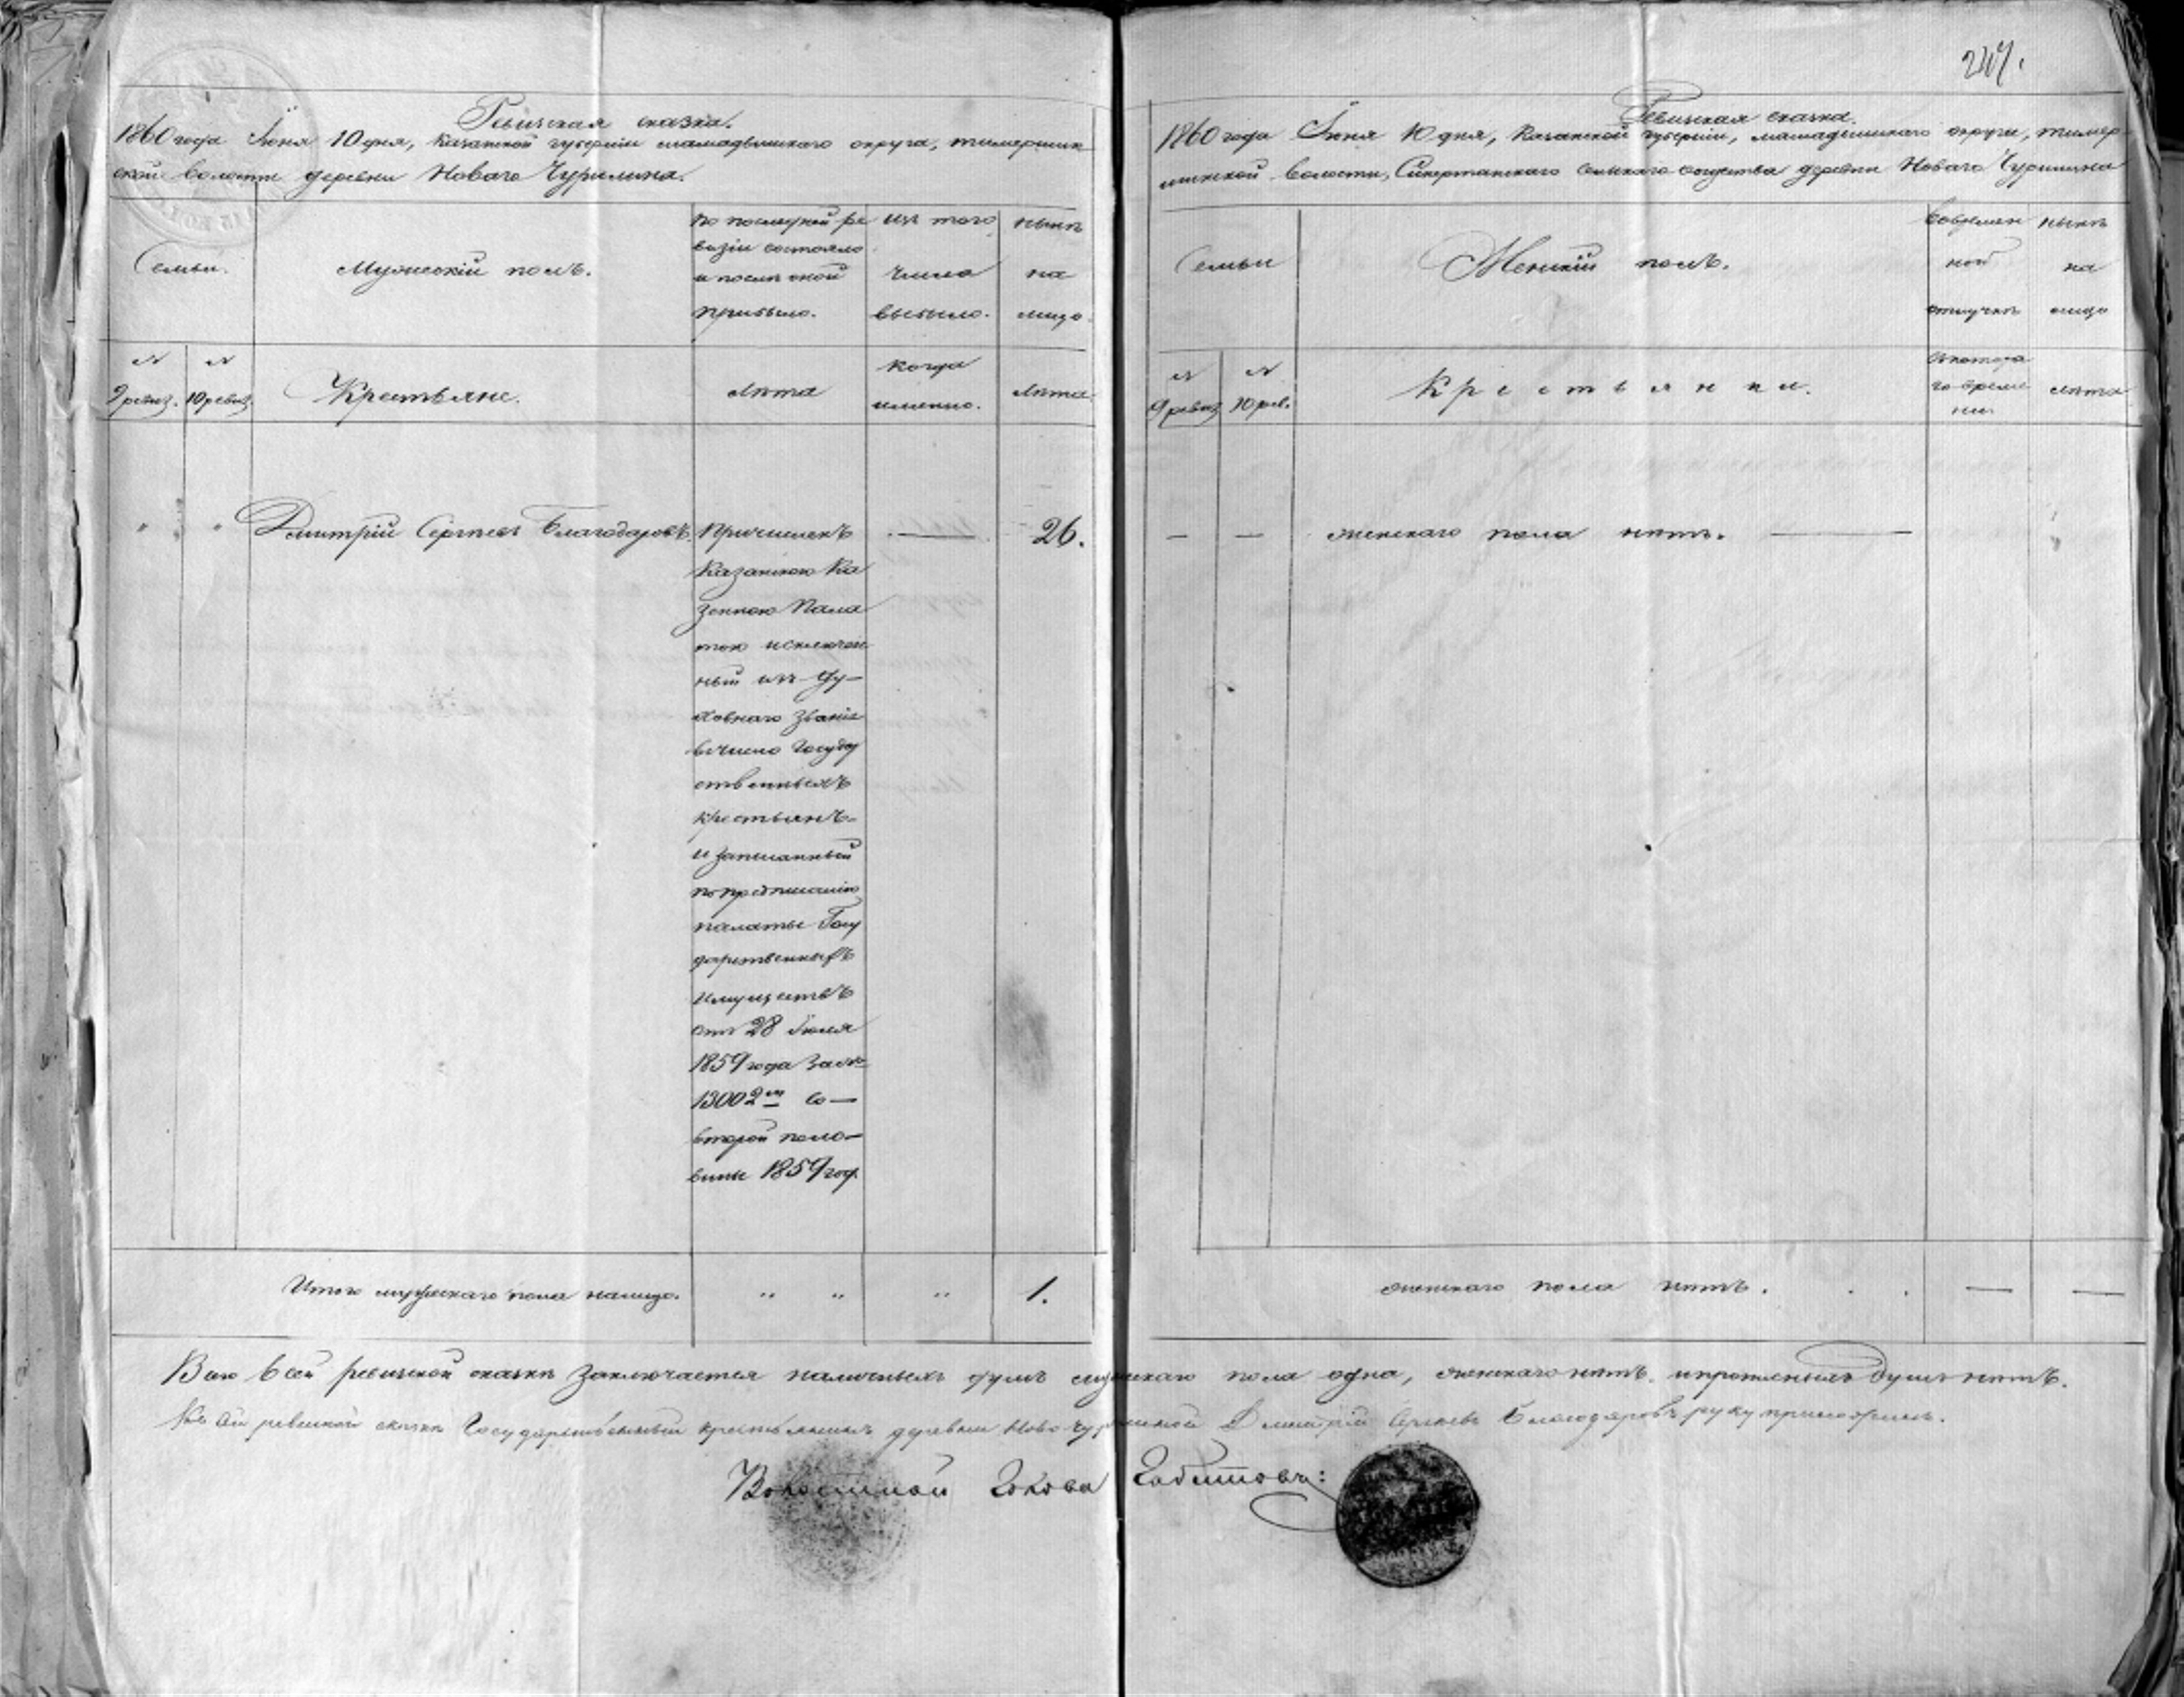 Ревизская сказка.
1860 года Июня 10 дня, Казанской губернии мамадышскаго округа, тимершик
ской волости деревни Новаго Чурилина.
Семьи.
Мужескій полъ.
По последней ре
визіи состояло
и после оной
прибыло.
изъ того
числа
выбыло.
ныне
на
лицо.
№
9 ревиз.
№
10 ревиз.
Крестьяне.
лета
когда
именно.
лета
Дмитрій Сергеевъ Благодаровъ.
Причисленъ
Казанскою Ка
зенною Пала
тою исключен
ный изъ ду-
ховнаго званія
вчисло Государ
ственныхъ
крестьянъ
и записанный
по предписанію
палаты Госу
дарственныхъ
Имуществъ
отъ 28 Июля
1859 года за №
13002м со-
второй поло-
вины 1859 год.
26.
Итого мужескаго пола налицо.
1.
247.
Ревизская сказка.
1860 года Июня 10 дня, Казанской губерніи, мамадышскаго округа, тимер
шикской волости, Сикертанскаго сельскаго общества деревни Новаго Чурилина
Семьи
Женскій полъ.
Вовремен
ной
отлучке
ныне
на
лицо
№
9 ревиз.
№
10 рев.
Крестьянки.
Съкотора
го време
ни
лета
женскаго пола нетъ.
женскаго пола нетъ.
Всего в сей ревизской сказке заключается наличныхъ душъ мужескаго пола одна, женскаго нетъ. и душъ нетъ.
Къ сей ревиской сказке Государственный крестьянинъ деревни Ново Чурилиной Дмитрій Сергеевъ Благодаровъ руку приложилъ.
Волостной Голова Габитовъ: